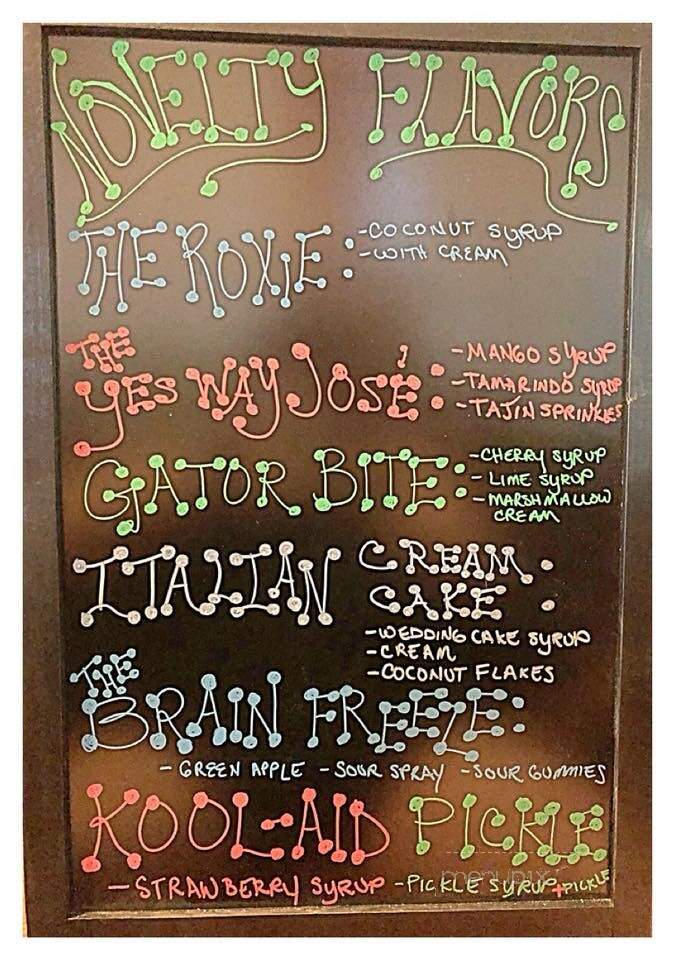 NOVELTY FLAVORS
THE ROXIE: -COCONUT SYRUP
-WITH CREAM
THE
YES WAY JOSÉ: -MANGO SYRUP
-TAMARINDO SYRUP
-TAJÍN SPRINKLES
GATOR BITE: -CHERRY SYRUP
-LIME SYRUP
-MARSHMALLOW
CREAM
ITALIAN CREAM
CAKE:
-WEDDING CAKE SYRUP
-CREAM
-COCONUT FLAKES
THE
BRAIN FREEZE:
-GREEN APPLE -SOUR SPRAY -SOUR GUMMIES
KOOL-AID PICKLE
menupix
-STRAWBERRY SYRUP -PICKLE SYRUP+PICKLE